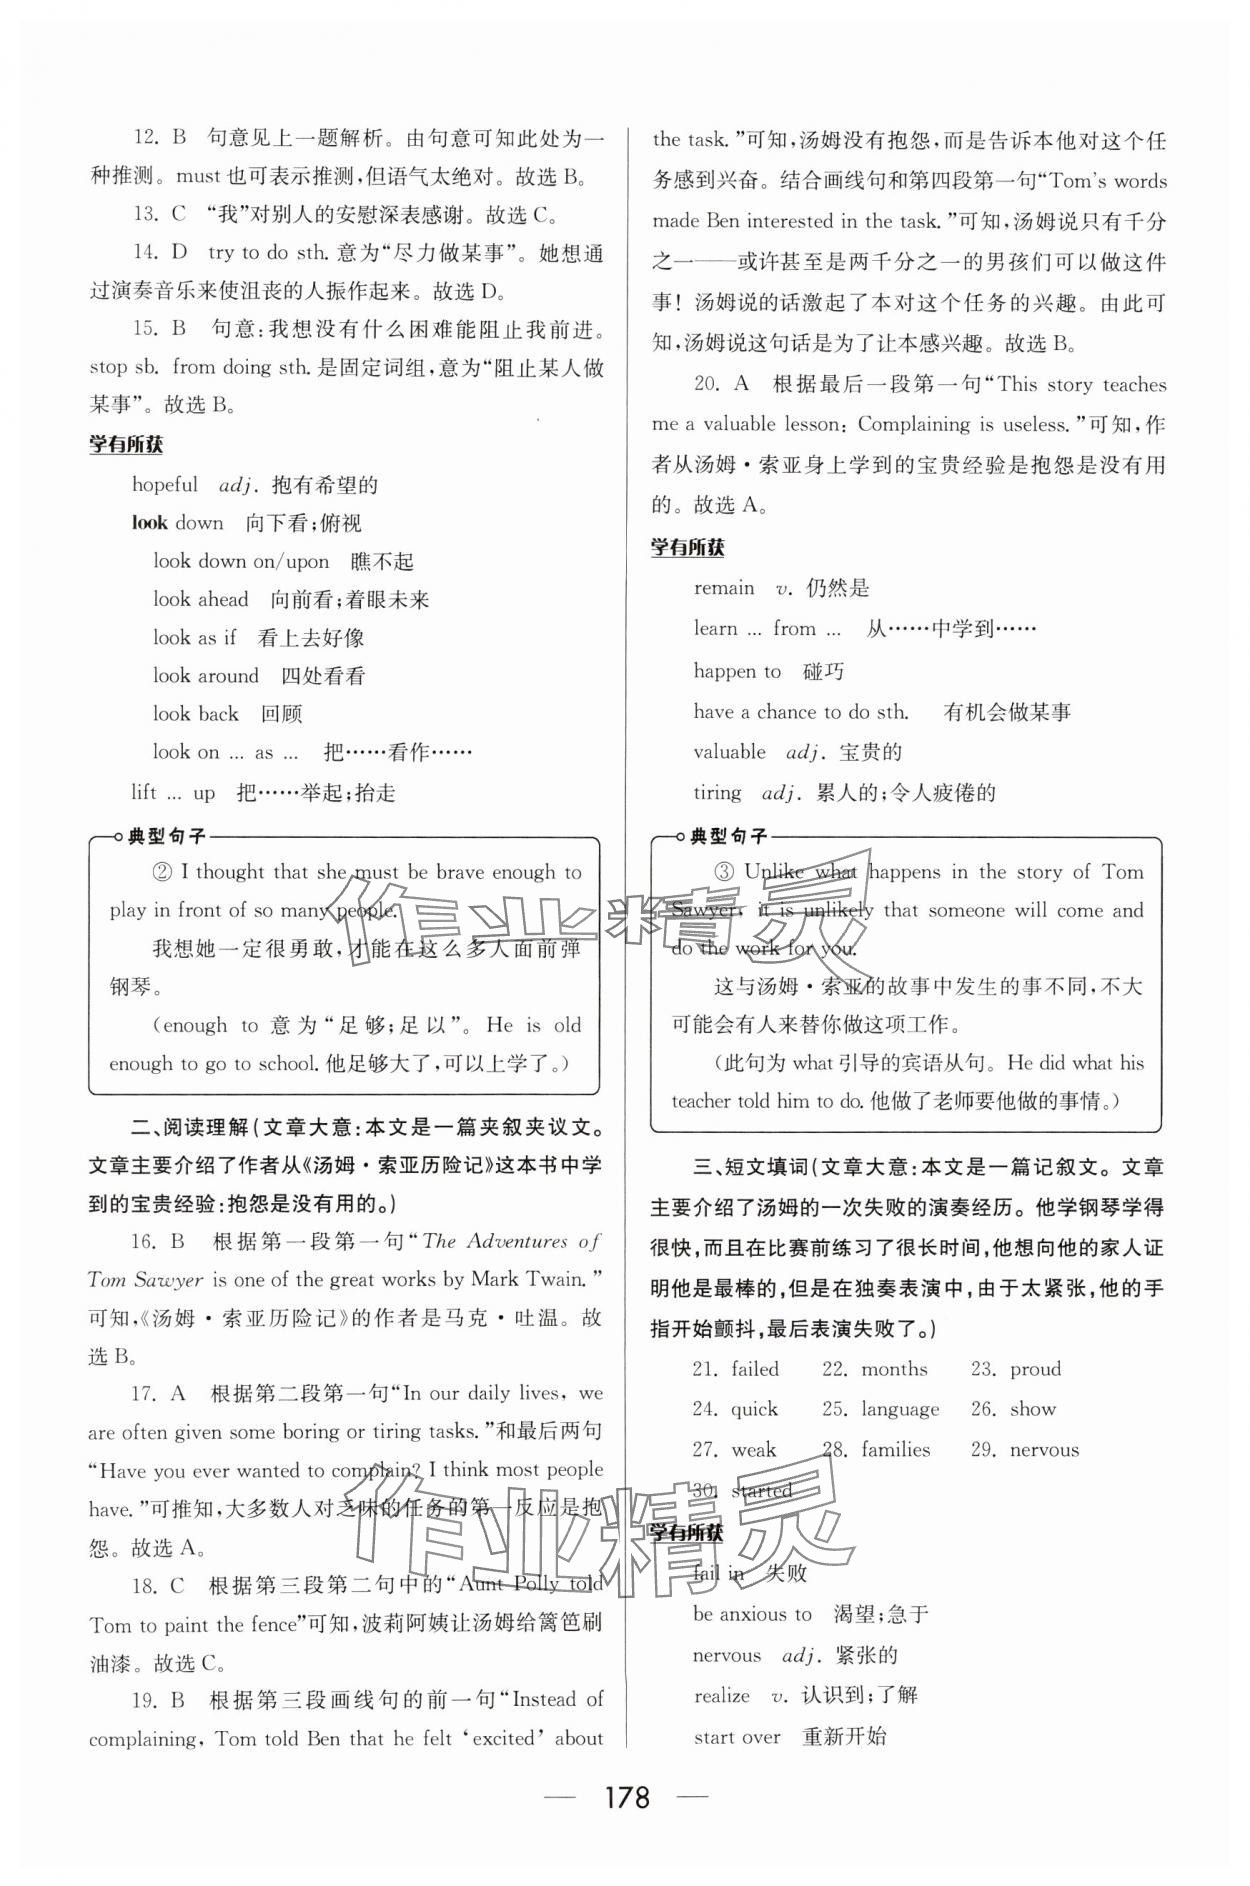 12. B 句意见上一题解析。由句意可知此处为一
种推测。must也可表示推测,但语气太绝对。故选B。
13. C “我”对别人的安慰深表感谢。故选C。
14. D try to do sth. 意为“尽力做某事”。她想通
过演奏音乐来使沮丧的人振作起来。故选D。
15. B 句意:我想没有什么困难能阻止我前进。
stop sb. from doing sth. 是固定词组,意为“阻止某人做
某事”。故选B。
学有所获
hopeful adj. 抱有希望的
look down 向下看;俯视
look down on/upon 瞧不起
look ahead 向前看;着眼未来
look as if 看上去好像
look around 四处看看
look back 回顾
look on … as … 把……看作……
lift … up 把……举起;抬走
典型句子
② I thought that she must be brave enough to
play in front of so many people.
我想她一定很勇敢,才能在这么多人面前弹
钢琴。
(enough to 意为“足够;足以”。He is old
enough to go to school. 他足够大了,可以上学了。)
二、阅读理解(文章大意:本文是一篇夹叙夹议文。
文章主要介绍了作者从《汤姆·索亚历险记》这本书中学
到的宝贵经验:抱怨是没有用的。)
16. B 根据第一段第一句“The Adventures of
Tom Sawyer is one of the great works by Mark Twain.”
可知,《汤姆·索亚历险记》的作者是马克·吐温。故
选B。
17. A 根据第二段第一句“In our daily lives, we
are often given some boring or tiring tasks.”和最后两句
“Have you ever wanted to complain? I think most people
have.”可推知,大多数人对乏味的任务的第一反应是抱
怨。故选A。
18. C 根据第三段第二句中的“Aunt Polly told
Tom to paint the fence”可知,波莉阿姨让汤姆给篱笆刷
油漆。故选C。
19. B 根据第三段画线句的前一句“Instead of
complaining, Tom told Ben that he felt ‘excited’ about
the task.”可知,汤姆没有抱怨,而是告诉本他对这个任
务感到兴奋。结合画线句和第四段第一句“Tom's words
made Ben interested in the task.”可知,汤姆说只有千分
之一——或许甚至是两千分之一的男孩们可以做这件
事!汤姆说的话激起了本对这个任务的兴趣。由此可
知,汤姆说这句话是为了让本感兴趣。故选B。
20. A 根据最后一段第一句“This story teaches
me a valuable lesson: Complaining is useless.”可知,作
者从汤姆·索亚身上学到的宝贵经验是抱怨是没有用
的。故选A。
学有所获
remain v. 仍然是
learn … from … 从……中学到……
happen to 碰巧
have a chance to do sth. 有机会做某事
valuable adj. 宝贵的
tiring adj. 累人的;令人疲倦的
典型句子
③ Unlike what happens in the story of Tom
Sawyer, it is unlikely that someone will come and
do the work for you.
这与汤姆·索亚的故事中发生的事不同,不大
可能会有人来替你做这项工作。
(此句为 what 引导的宾语从句。He did what his
teacher told him to do. 他做了老师要他做的事情。)
三、短文填词(文章大意:本文是一篇记叙文。文章
主要介绍了汤姆的一次失败的演奏经历。他学钢琴学得
很快,而且在比赛前练习了很长时间,他想向他的家人证
明他是最棒的,但是在独奏表演中,由于太紧张,他的手
指开始颤抖,最后表演失败了。)
21. failed 22. months 23. proud
24. quick 25. language 26. show
27. weak 28. families 29. nervous
30. started
学有所获
fail in 失败
be anxious to 渴望;急于
nervous adj. 紧张的
realize v. 认识到;了解
start over 重新开始
— 178 —
作业精灵
作业精灵